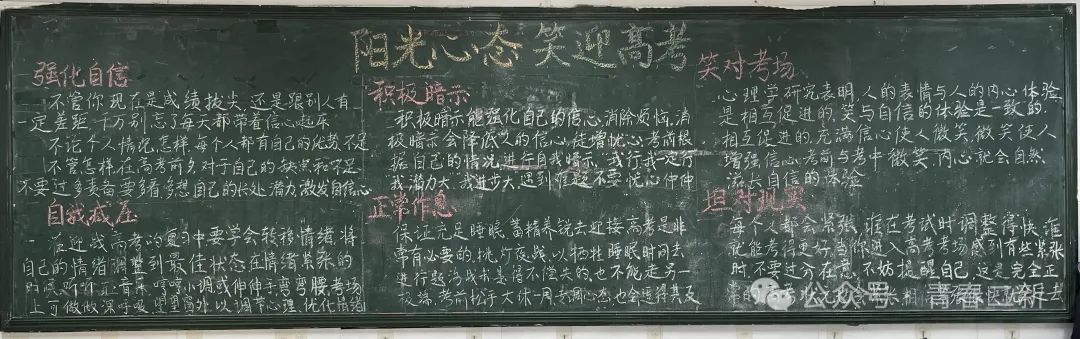 阳光心态 笑迎高考
强化自信
不管你现在是成绩拔尖还是跟别人有
一定差距千万别忘了每天都带着信心起床
不论个人情况怎样,每个人都有自己的优势不足
不管怎样,在高考前夕对于自己的缺点和不足
不要过多责备要多看多想自己的长处潜力激发自信心
自我减压
在迎战高考的复习中要学会转移情绪,将
自己的情绪调整到最佳状态在情绪紧张的
时候听听音乐,哼哼小调或伸伸手弯弯腰考场
上可做做深呼吸,望望窗外以调节心理,优化情绪
积极暗示
积极暗示能强化自己的信心,消除烦恼,消
极暗示会降低人的信心,徒增忧心考前根
据自己的情况,进行自我暗示,或行我一定行
我潜力大,我进步大,遇到难题不要忧心忡忡
正常作息
保证充足睡眠,蓄精养锐去迎接高考是非
常有必要的,挑灯夜战,以牺牲睡眠时间去
进行题海战术是得不偿失的,也不能走另一
极端,考前松手大休一周去调心态也会适得其反
笑对考场
心理学研究表明,人的表情与人的内心体验
是相互促进的,笑与自信的体验是一致的
相互促进的,充满信心使人微笑,微笑使人
增强信心,考前与考中微笑,内心就会自然
滋长自信的体验
坦对现罢
每个人都会紧张,谁在考试时调整得快,谁
就能考得更好,当你进入高考考场感到有些紧张
时,不要过分在意,不妨提醒自己,这是完全正
常的
公众号·青春巴新